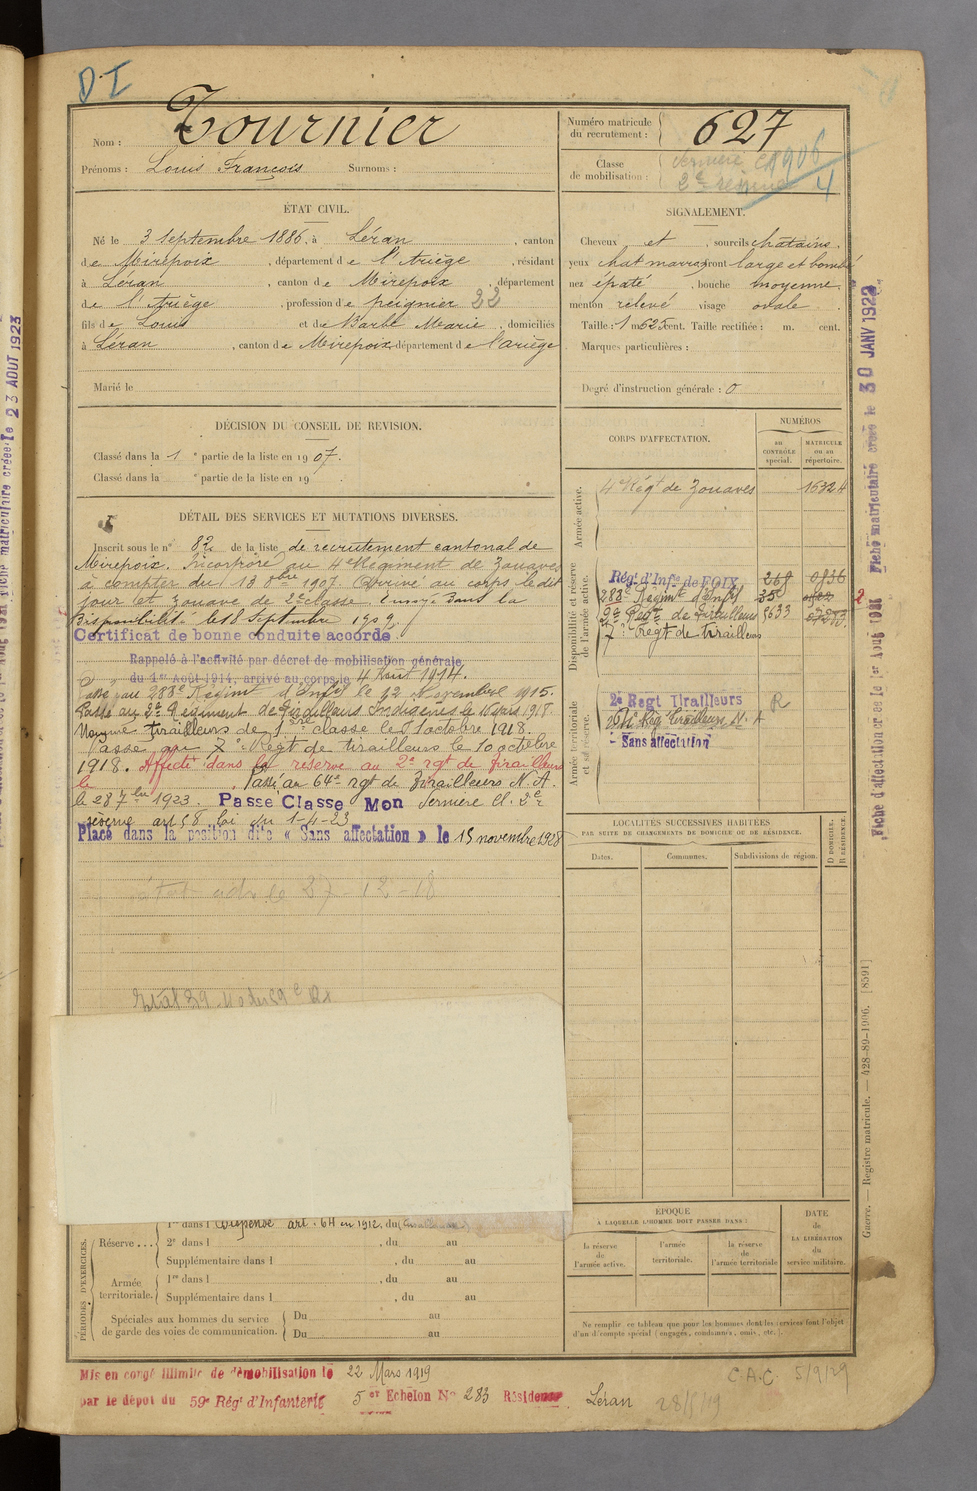 DI
Nom : Tournier
Prénoms : Louis François Surnoms :
Numéro matricule du recrutement : 627
Classe de mobilisation : dernière Cl 1906
2e réserve 4
ÉTAT CIVIL.
Né le 3 septembre 1886, à Léran, canton
de Mirepoix, département de l'Ariège, résidant
à Léran, canton de Mirepoix, département
de l'Ariège, profession de peignier 22
fils de Louis et de Barbe Marie, domiciliés
à Léran, canton de Mirepoix département de l'ariège
Marié le
SIGNALEMENT.
Cheveux et, sourcils châtains.
yeux chat marrons front large et bombé
nez épaté, bouche moyenne.
menton relevé visage ovale.
Taille : 1 m 625 cent. Taille rectifiée : m. cent.
Marques particulières :
Degré d'instruction générale : 0
DÉCISION DU CONSEIL DE REVISION.
Classé dans la 1 e partie de la liste en 1907.
Classé dans la e partie de la liste en 19 .
DÉTAIL DES SERVICES ET MUTATIONS DIVERSES.
Inscrit sous le n° 82 de la liste de recrutement cantonal de
Mirepoix. Incorporé au 4e Régiment de Zouaves
à compter du 13 8bre 1907. Arrivé au corps le dit
jour et zouave de 2e classe. Envoyé dans la
disponibilité le 18 Septembre 1909.
Certificat de bonne conduite accordé
Rappelé à l'activité par décret de mobilisation générale
du 1er Août 1914, arrivé au corps le 4 Août 1914.
Passé au 283e Régimt d'Infie le 12 Novembre 1915.
Passé au 2e Régiment de Tirailleurs Indigènes le 16 mars 1918.
Nommé tirailleurs de 1ère classe le 1 octobre 1918.
Passé au 7e Regt de tirailleurs le 10 octobre
1918. Affecté dans la réserve au 2e rgt de Tirailleurs
le . Passé au 64e rgt de Tirailleurs N. A.
le 28 7bre 1923. Passe Classe Mon dernière Cl. 2e
réserve art 58 loi du 1-4-23
Placé dans la position dite « Sans affectation » le 15 novembre 1928
le 27-12-18
CORPS D'AFFECTATION.
NUMÉROS
au CONTRÔLE spécial.
MATRICULE ou au répertoire.
Armée active.
4e Régt de Zouaves 16324
Disponibilité et réserve de l'armée active.
Régt d'Infie de FOIX 268 0836
283e Régimt d'Infie
2e Régt de Tirailleurs 5633
7e Regt de tirailleurs
Armée territoriale et sa réserve.
2e Regt Tirailleurs R
Rég Tirailleurs N. A
- Sans affectation
LOCALITÉS SUCCESSIVES HABITÉES
PAR SUITE DE CHANGEMENTS DE DOMICILE OU DE RÉSIDENCE.
Dates. Communes. Subdivisions de région. D DOMICILE. R RÉSIDENCE.
ÉPOQUE
À LAQUELLE L'HOMME DOIT PASSER DANS :
la réserve de l'armée active.
l'armée territoriale.
la réserve de l'armée territoriale
DATE de LA LIBÉRATION du service militaire.
Ne remplir ce tableau que pour les hommes dont les services font l'objet
d'un décompte spécial (engagés, condamnés, omis, etc.).
PÉRIODES D'EXERCICES.
Réserve... 1re dans l Dispensé art. 64 en 1912, du
2e dans l , du au
Supplémentaire dans l , du au
Armée territoriale. 1re dans l , du au
Supplémentaire dans l , du au
Spéciales aux hommes du service de garde des voies de communication. Du au
Du au
Mis en congé illimité de démobilisation le 22 Mars 1919
par le dépot du 59e Régt d'Infanterie 5er Echelon No 283 Résidence Léran
C.A.C. 5/9/29
28/5/19
Guerre. — Registre matricule. — 428-89-1906. [8591]
Fiche d'affectation créée le 1er Août 1921 Fiche matriculaire créée le 30 JANV 1922
Fiche matriculaire créée le 23 AOUT 1923